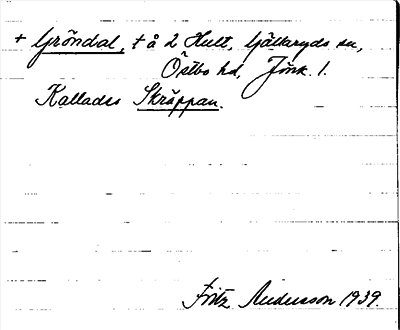 + Gröndal, t å 2 Hult, Gällaryds sn,
Östbo hd, Jönk. l.
Kallades Skräppan.
Fritz Andersson 1939.